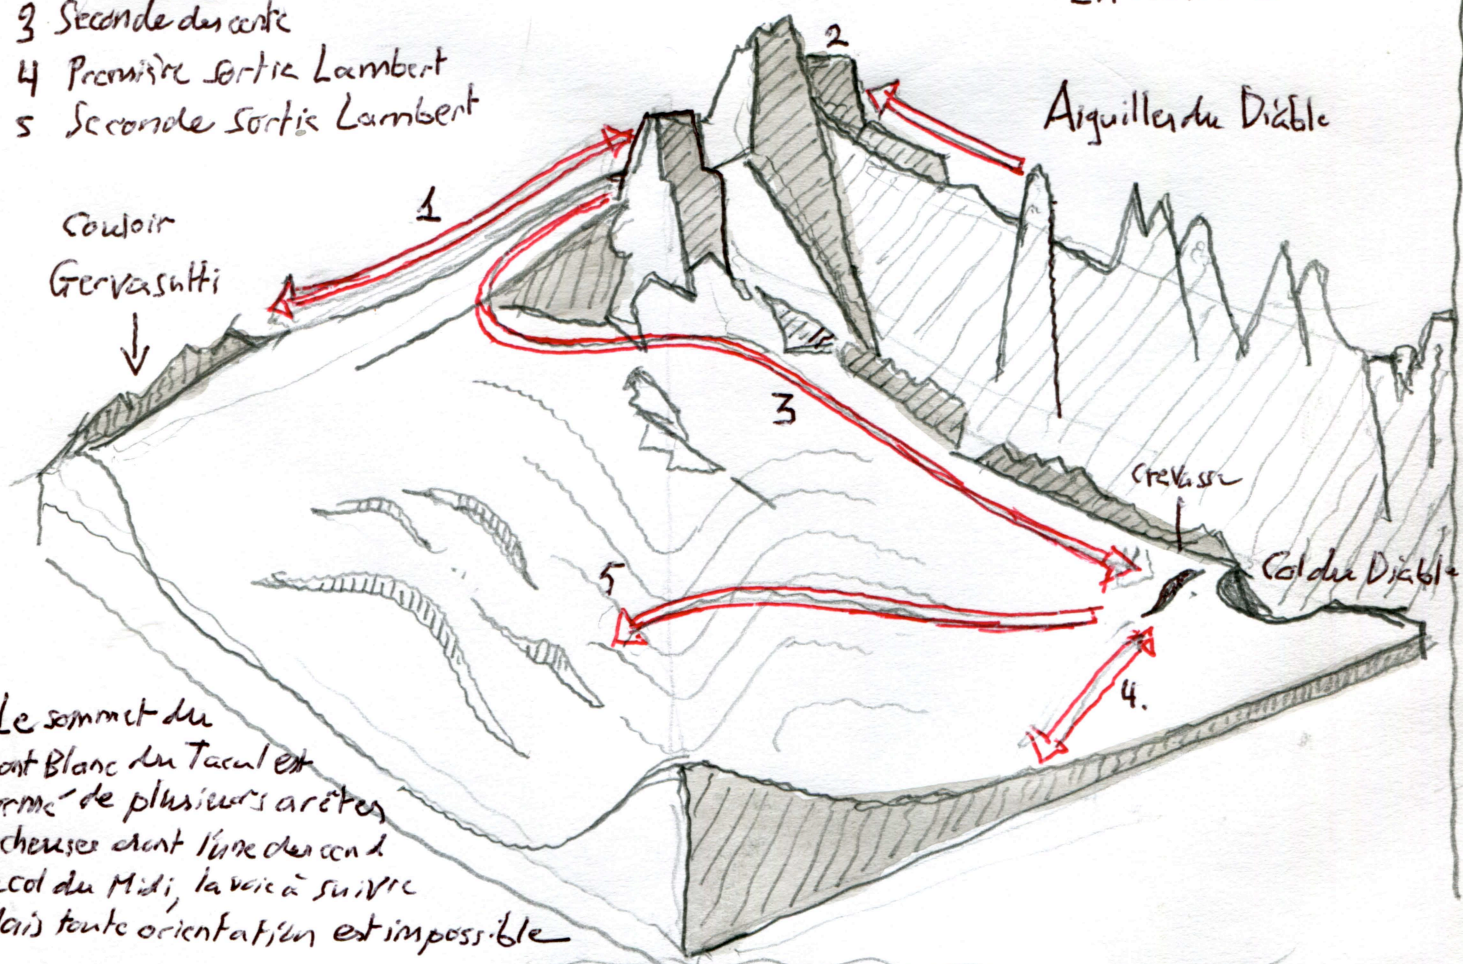 3 Seconde descente
4 Première sortie Lambert
5 Seconde sortie Lambert
2
Aiguilles du Diable
1
Couloir
Gervasutti
3
crevasse
Col du Diable
5
4.
Le sommet du
ont Blanc du Tacul est
ormé de plusieurs arêtes
cheuses dont l'une descend
col du Midi, la voie à suivre
ais toute orientation est impossible